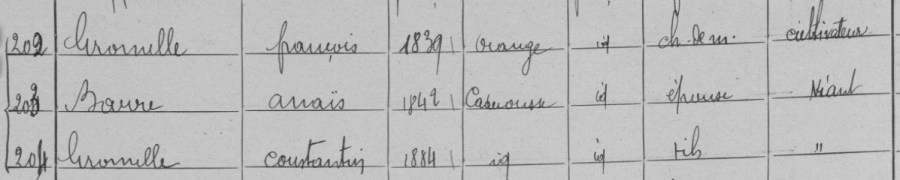 202 Gromelle françois 1839 orange id ch. de m. cultivateur
203 Barre anaïs 1842 Caderousse id épouse Néant
204 Gromelle constantin 1884 id id fils "